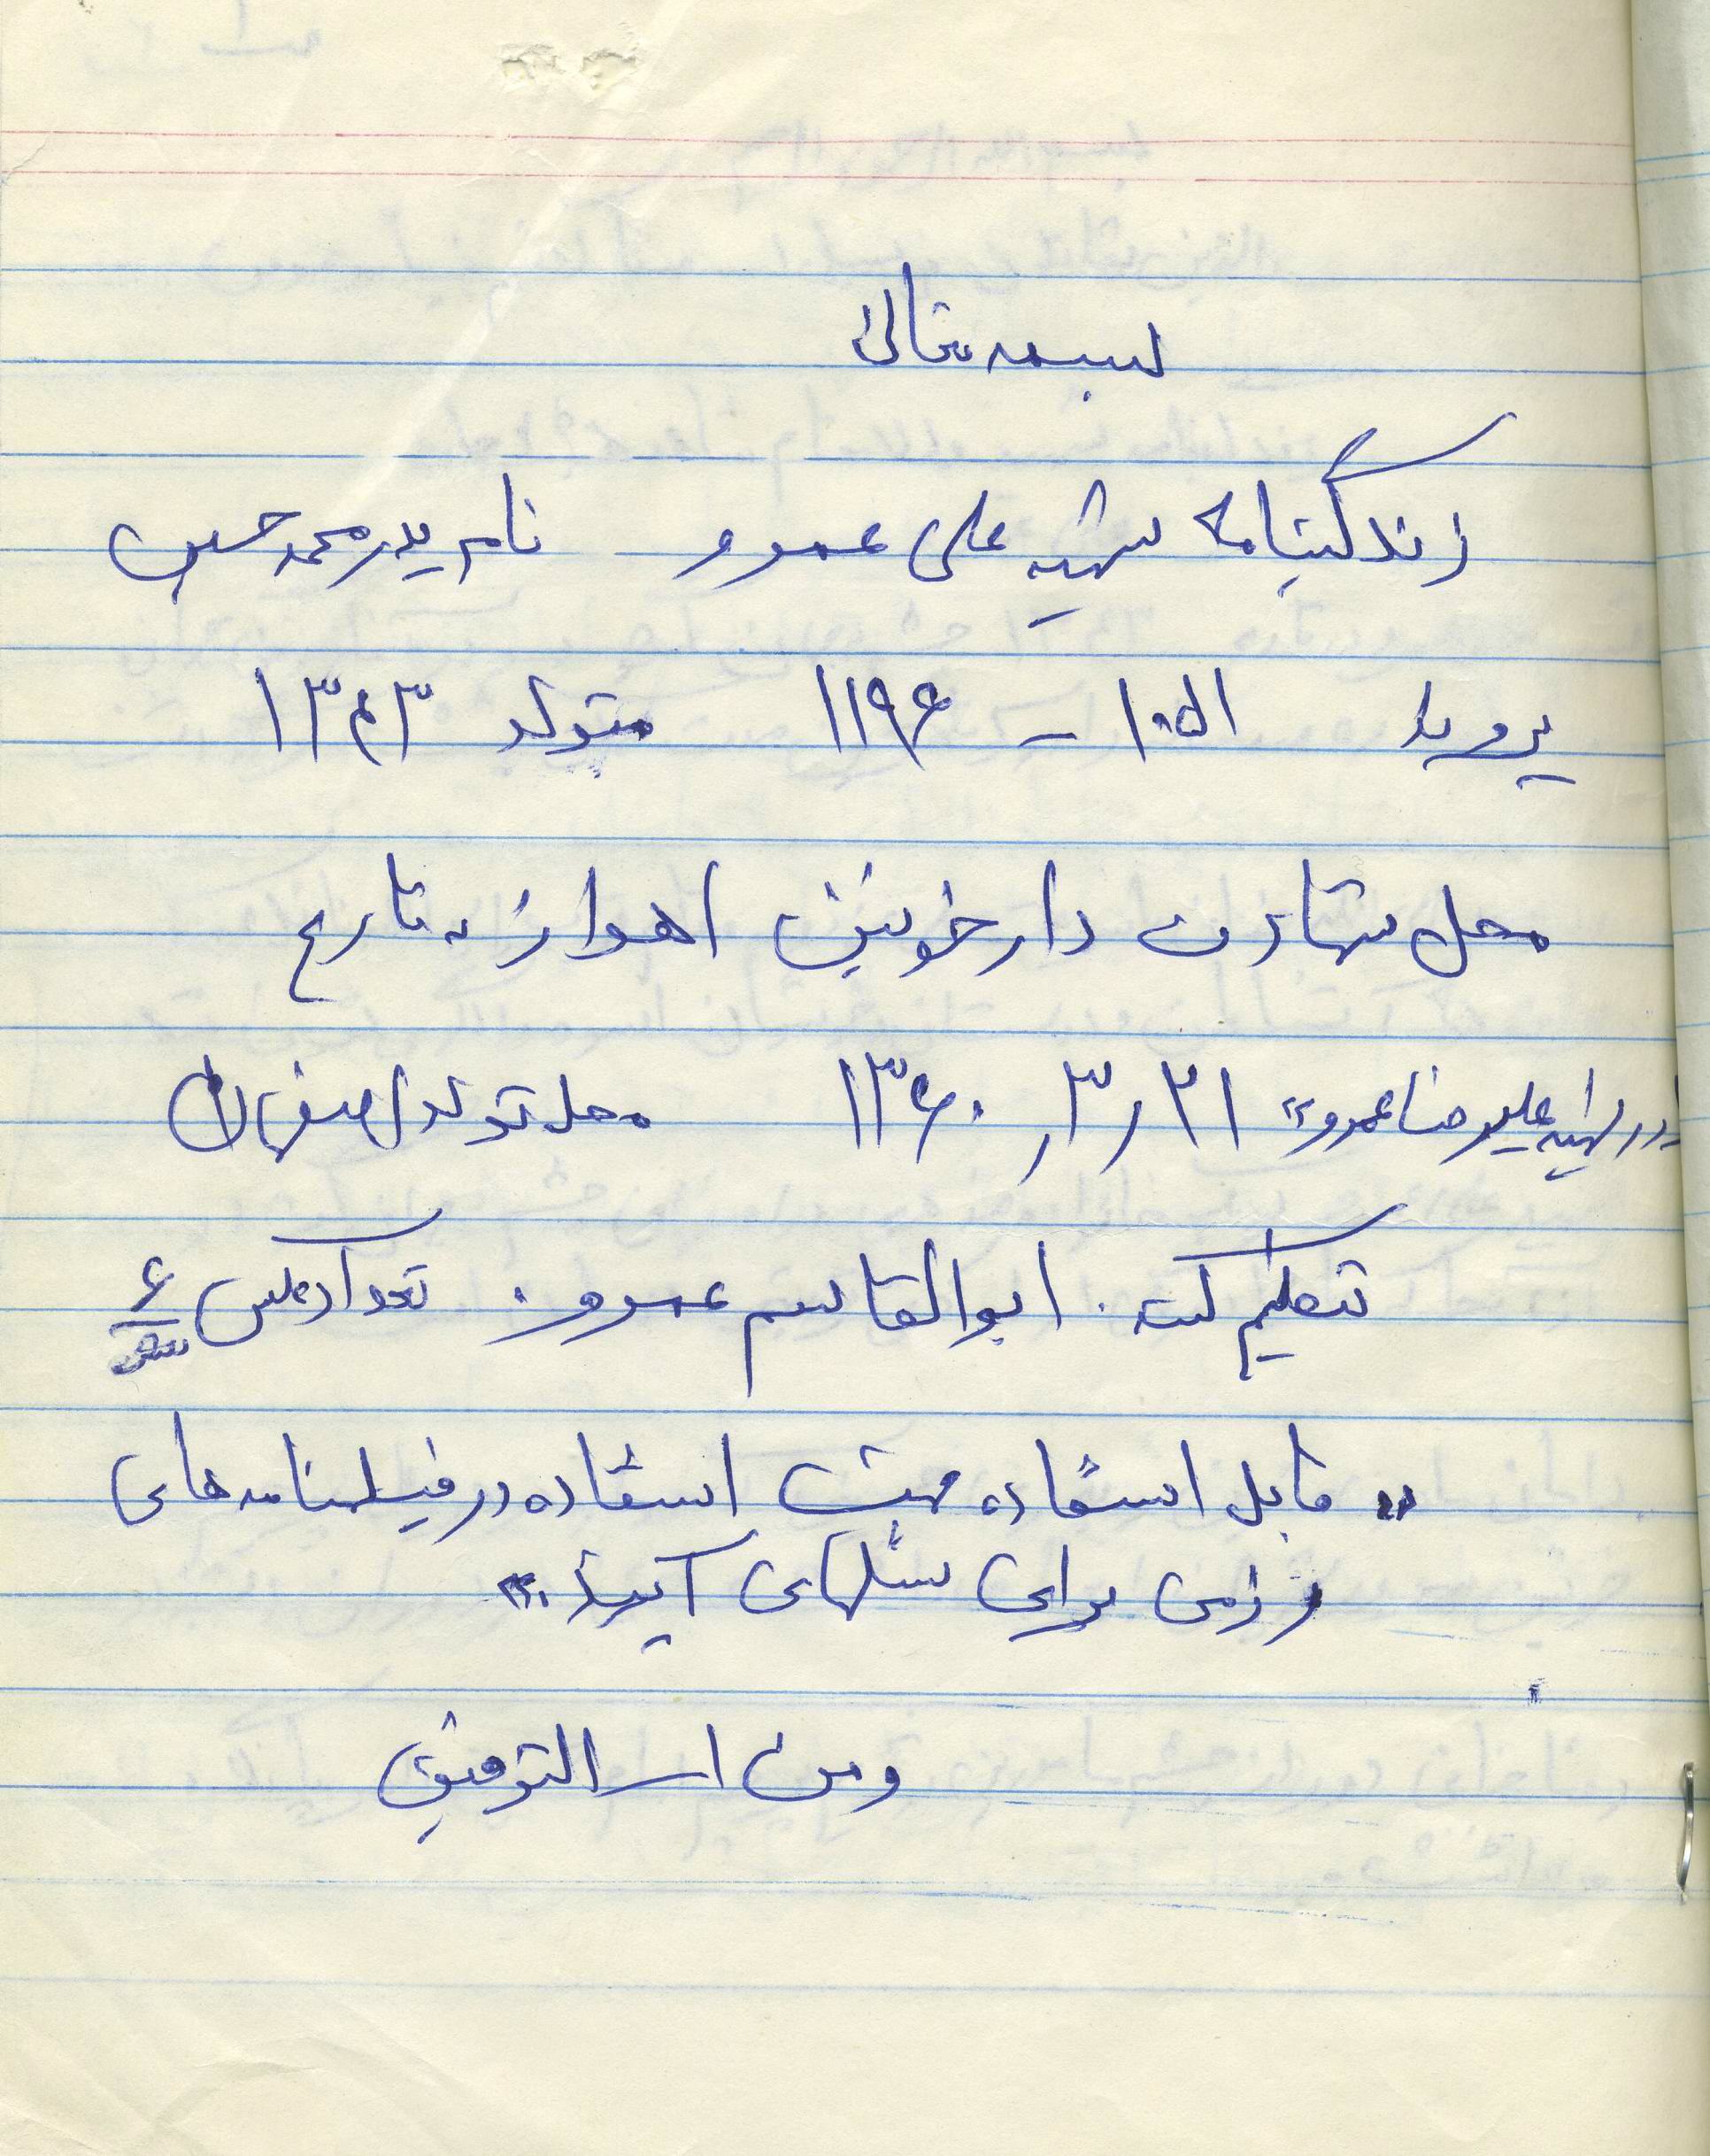 بسمه تعالی
زندگینامه شهید علی عمرو نام پدر محمد حسین
پرونده ۱۱۹۶ متولد ۱۳۴۳
محل شهادت دارخوئین اهواز به تاریخ
شهید علیرضا عمروی ۱۳۶۰/۳/۲۱ محل تولد اصفهان
تنظیم کننده. ابوالقاسم عمرو. تعداد عکس ۶
«قابل استفاده جهت استفاده در فیلمنامه های
رزمی برای نسلهای آینده»
و من الله التوفیق